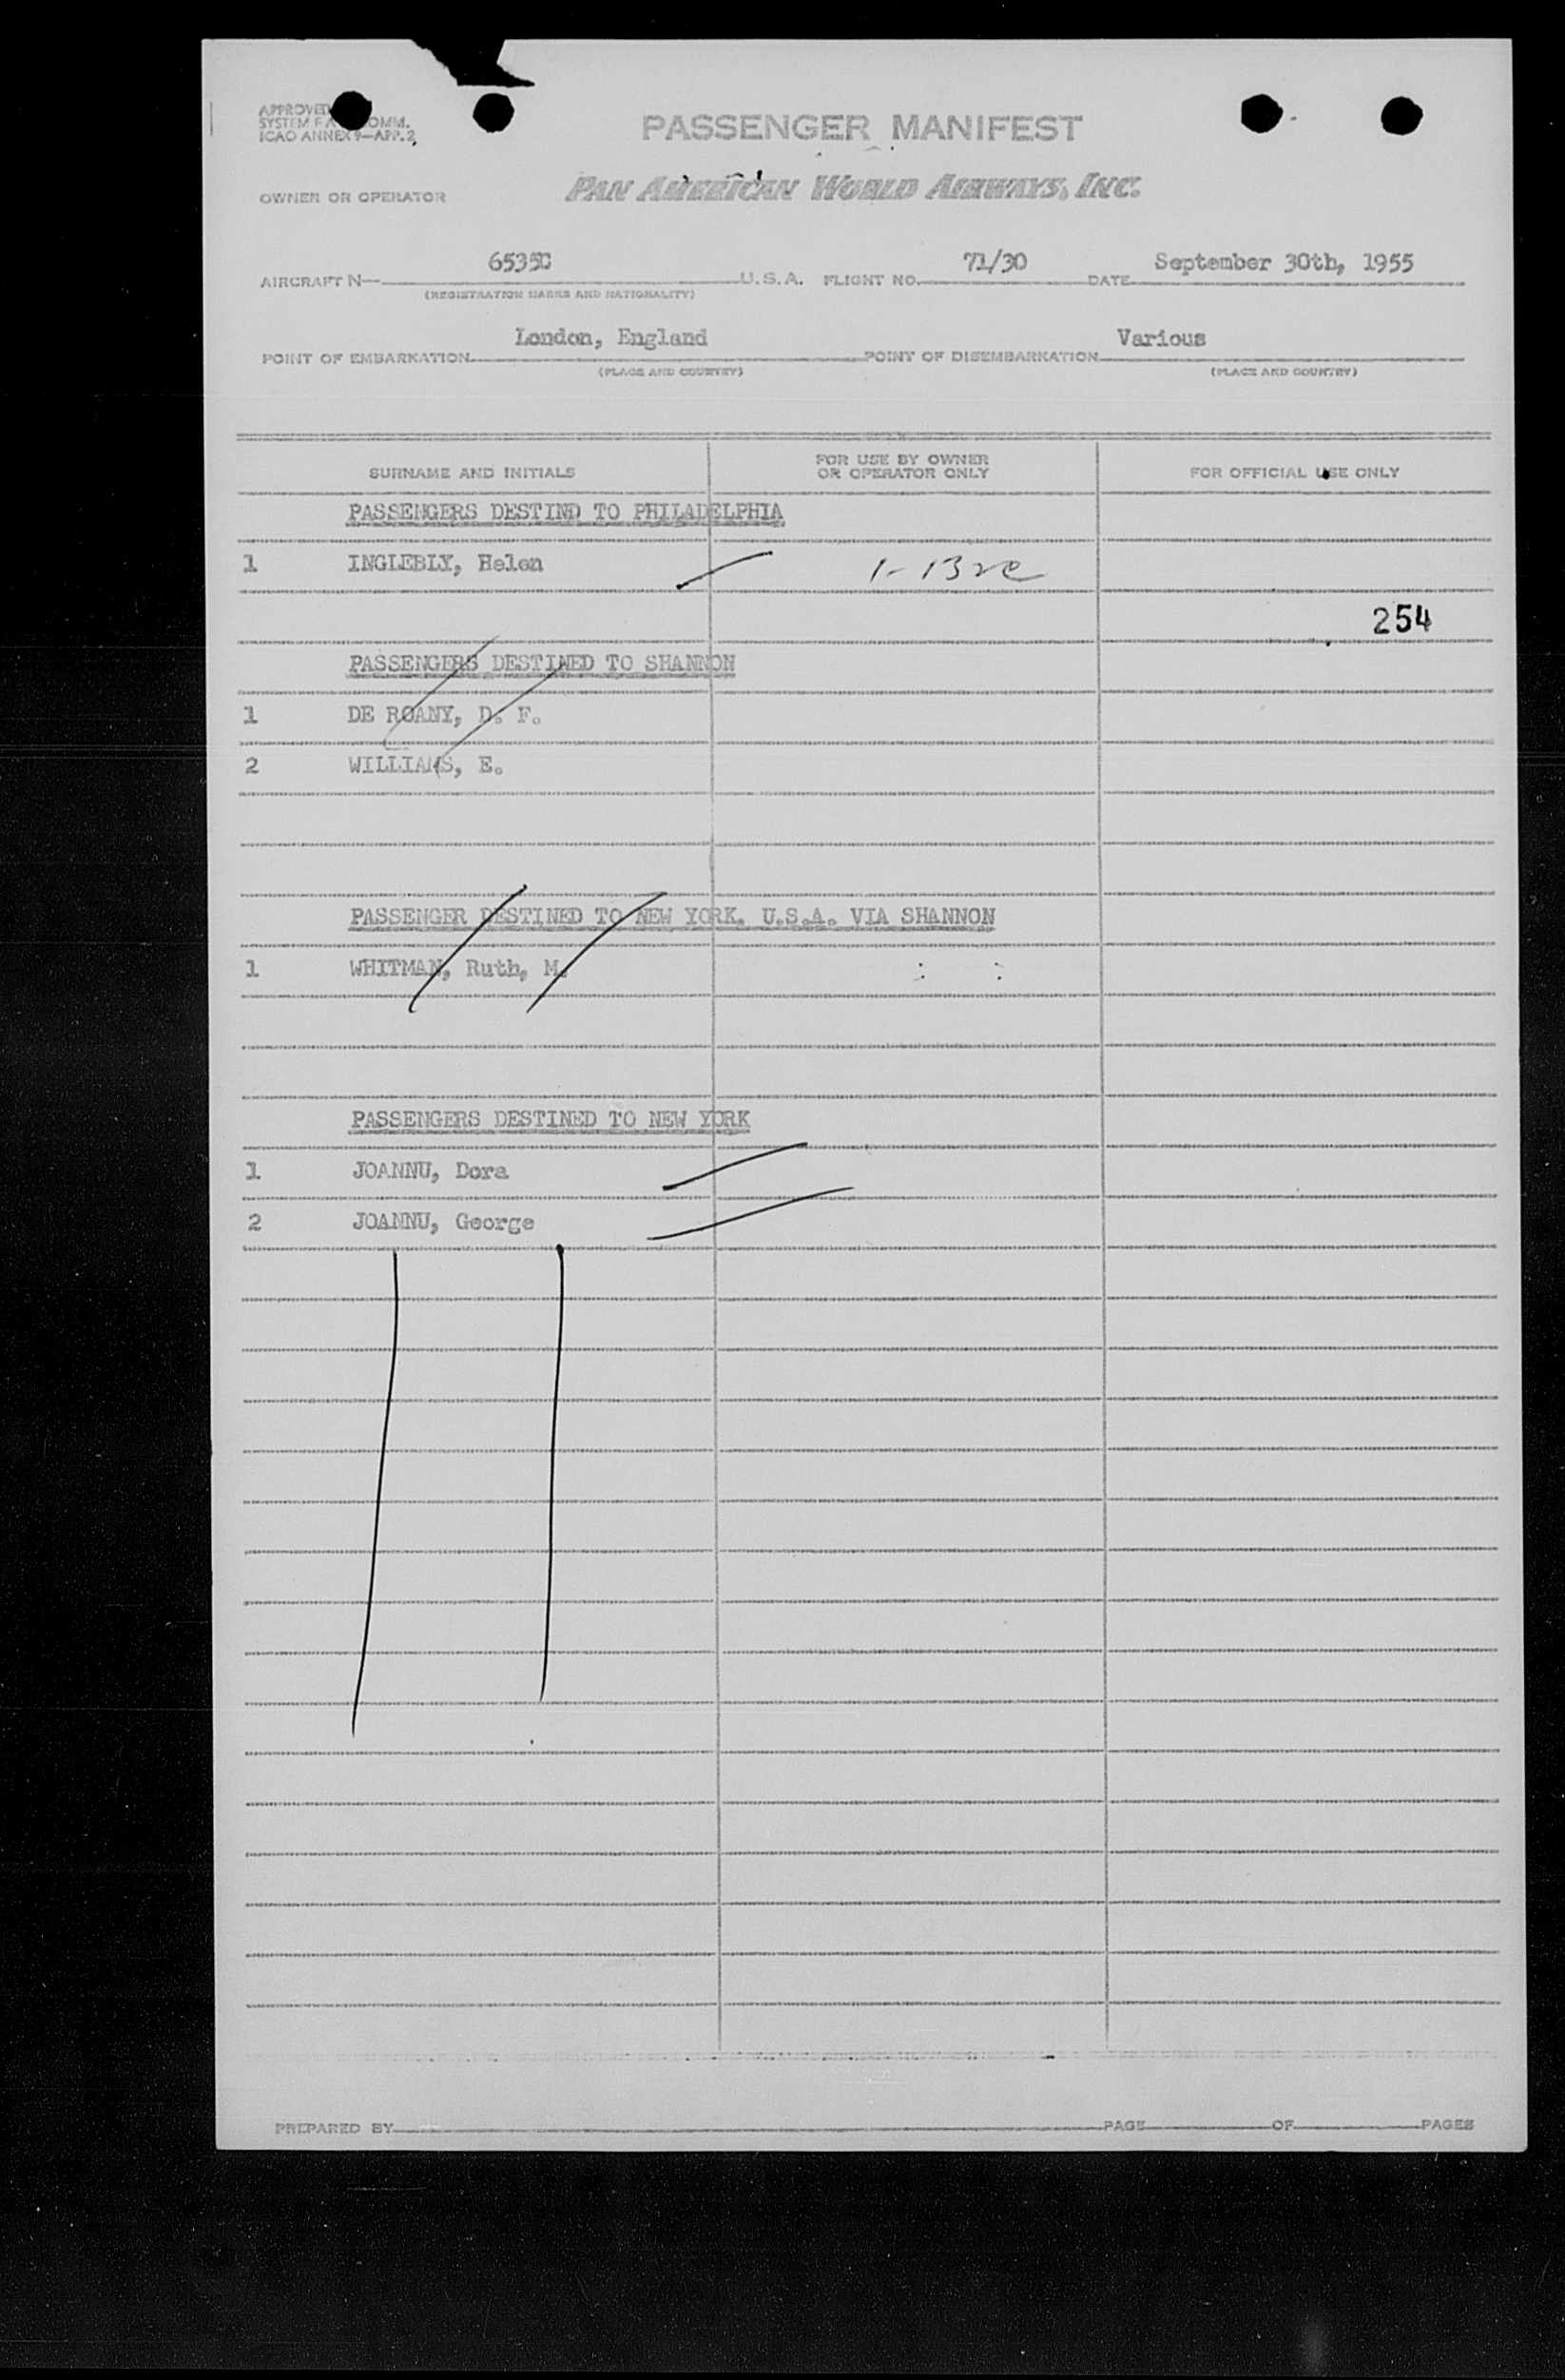 APPROVED
SYSTEM FA COMM.
ICAO ANNEX 9—APP. 2
PASSENGER MANIFEST
OWNER OR OPERATOR PAN AMERICAN WORLD AIRWAYS, INC.
AIRCRAFT N— 6535C U.S.A. FLIGHT NO. 71/30 DATE September 30th, 1955
(REGISTRATION MARKS AND NATIONALITY)
POINT OF EMBARKATION London, England POINT OF DISEMBARKATION Various
(PLACE AND COUNTRY) (PLACE AND COUNTRY)
SURNAME AND INITIALS FOR USE BY OWNER OR OPERATOR ONLY FOR OFFICIAL USE ONLY
PASSENGERS DESTIND TO PHILADELPHIA
1 INGLEBLY, Helen
254
PASSENGERS DESTINED TO SHANNON
1 DE ROANY, D. F.
2 WILLIAMS, E.
PASSENGER DESTINED TO NEW YORK. U.S.A. VIA SHANNON
1 WHITMAN, Ruth, M.
PASSENGERS DESTINED TO NEW YORK
1 JOANNU, Dora
2 JOANNU, George
PREPARED BY PAGE OF PAGES